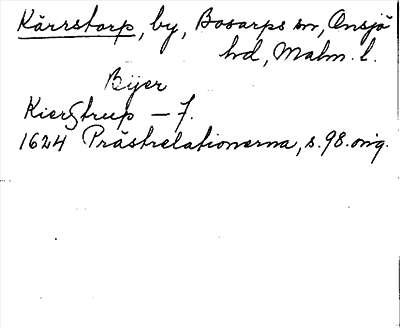 Kärrstorp, by, Bosarps sn, Onsjö
hd, Malm. l.
Byer
Kierstrup — 7.
1624 Prästrelationerna, s. 98. orig.